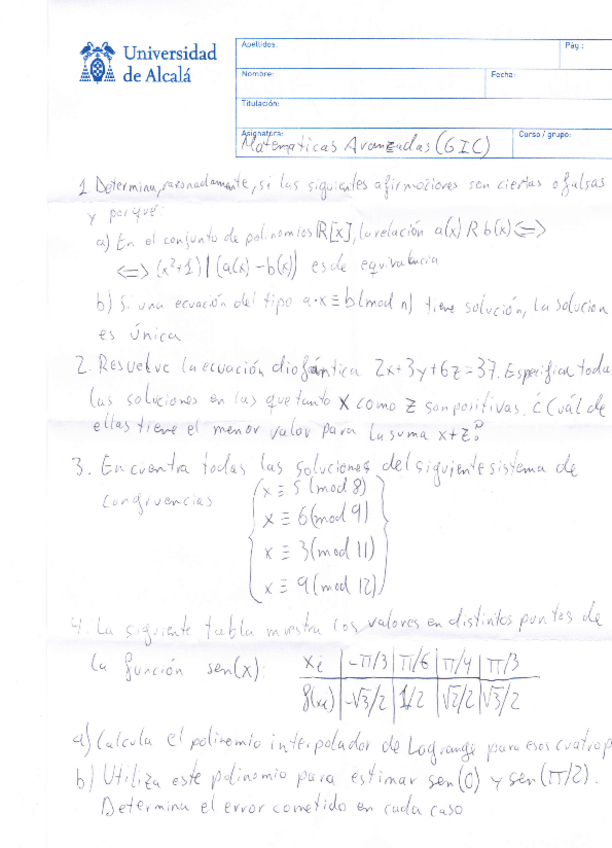 Universidad
de Alcalá
Apellidos:
Pág.:
Nombre:
Fecha:
Titulación:
Asignatura:
Matematicas Avanzadas (GIC)
Curso / grupo:
1 Determina, razonadamente, si las siguientes afirmaciones son ciertas o falsas
y por qué:
a) En el conjunto de polinomios ℝ[x], la relación a(x) R b(x) <=>
<=> (x²+1) | (a(x) - b(x)) es de equivalencia
b) Si una ecuación del tipo a·x ≡ b (mod n) tiene solución, la solucion
es única
2. Resuelve la ecuación diofántica 2x+3y+6z=37. Especifica toda
las soluciones en las que tanto x como z son positivas. ¿Cuál de
ellas tiene el menor valor para la suma x+z?
3. Encuentra todas las soluciones del siguiente sistema de
congruencias
x ≡ 5 (mod 8)
x ≡ 6 (mod 9)
x ≡ 3 (mod 11)
x ≡ 9 (mod 12)
4. La siguiente tabla muestra los valores en distintos puntos de
la función sen(x):
xi | -π/3 | π/6 | π/4 | π/3
f(xi) | -√3/2 | 1/2 | √2/2 | √3/2
a) Calcula el polinomio interpolador de Lagrange para esos cuatro p
b) Utiliza este polinomio para estimar sen(0) y sen(π/2).
Determina el error cometido en cada caso